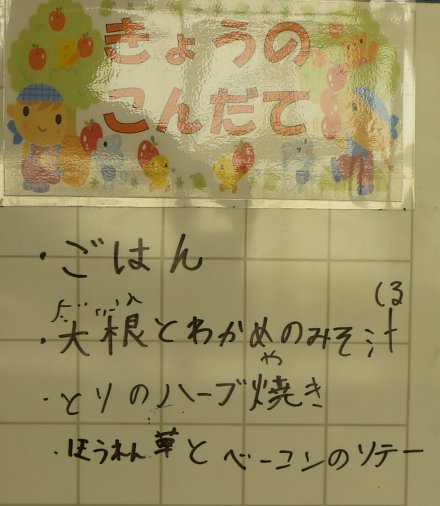 きょうの
こんだて
・ごはん
だいこん しる
・大根とわかめのみそ汁
や
・とりのハーブ焼き
・ほうれん草とベーコンのソテー